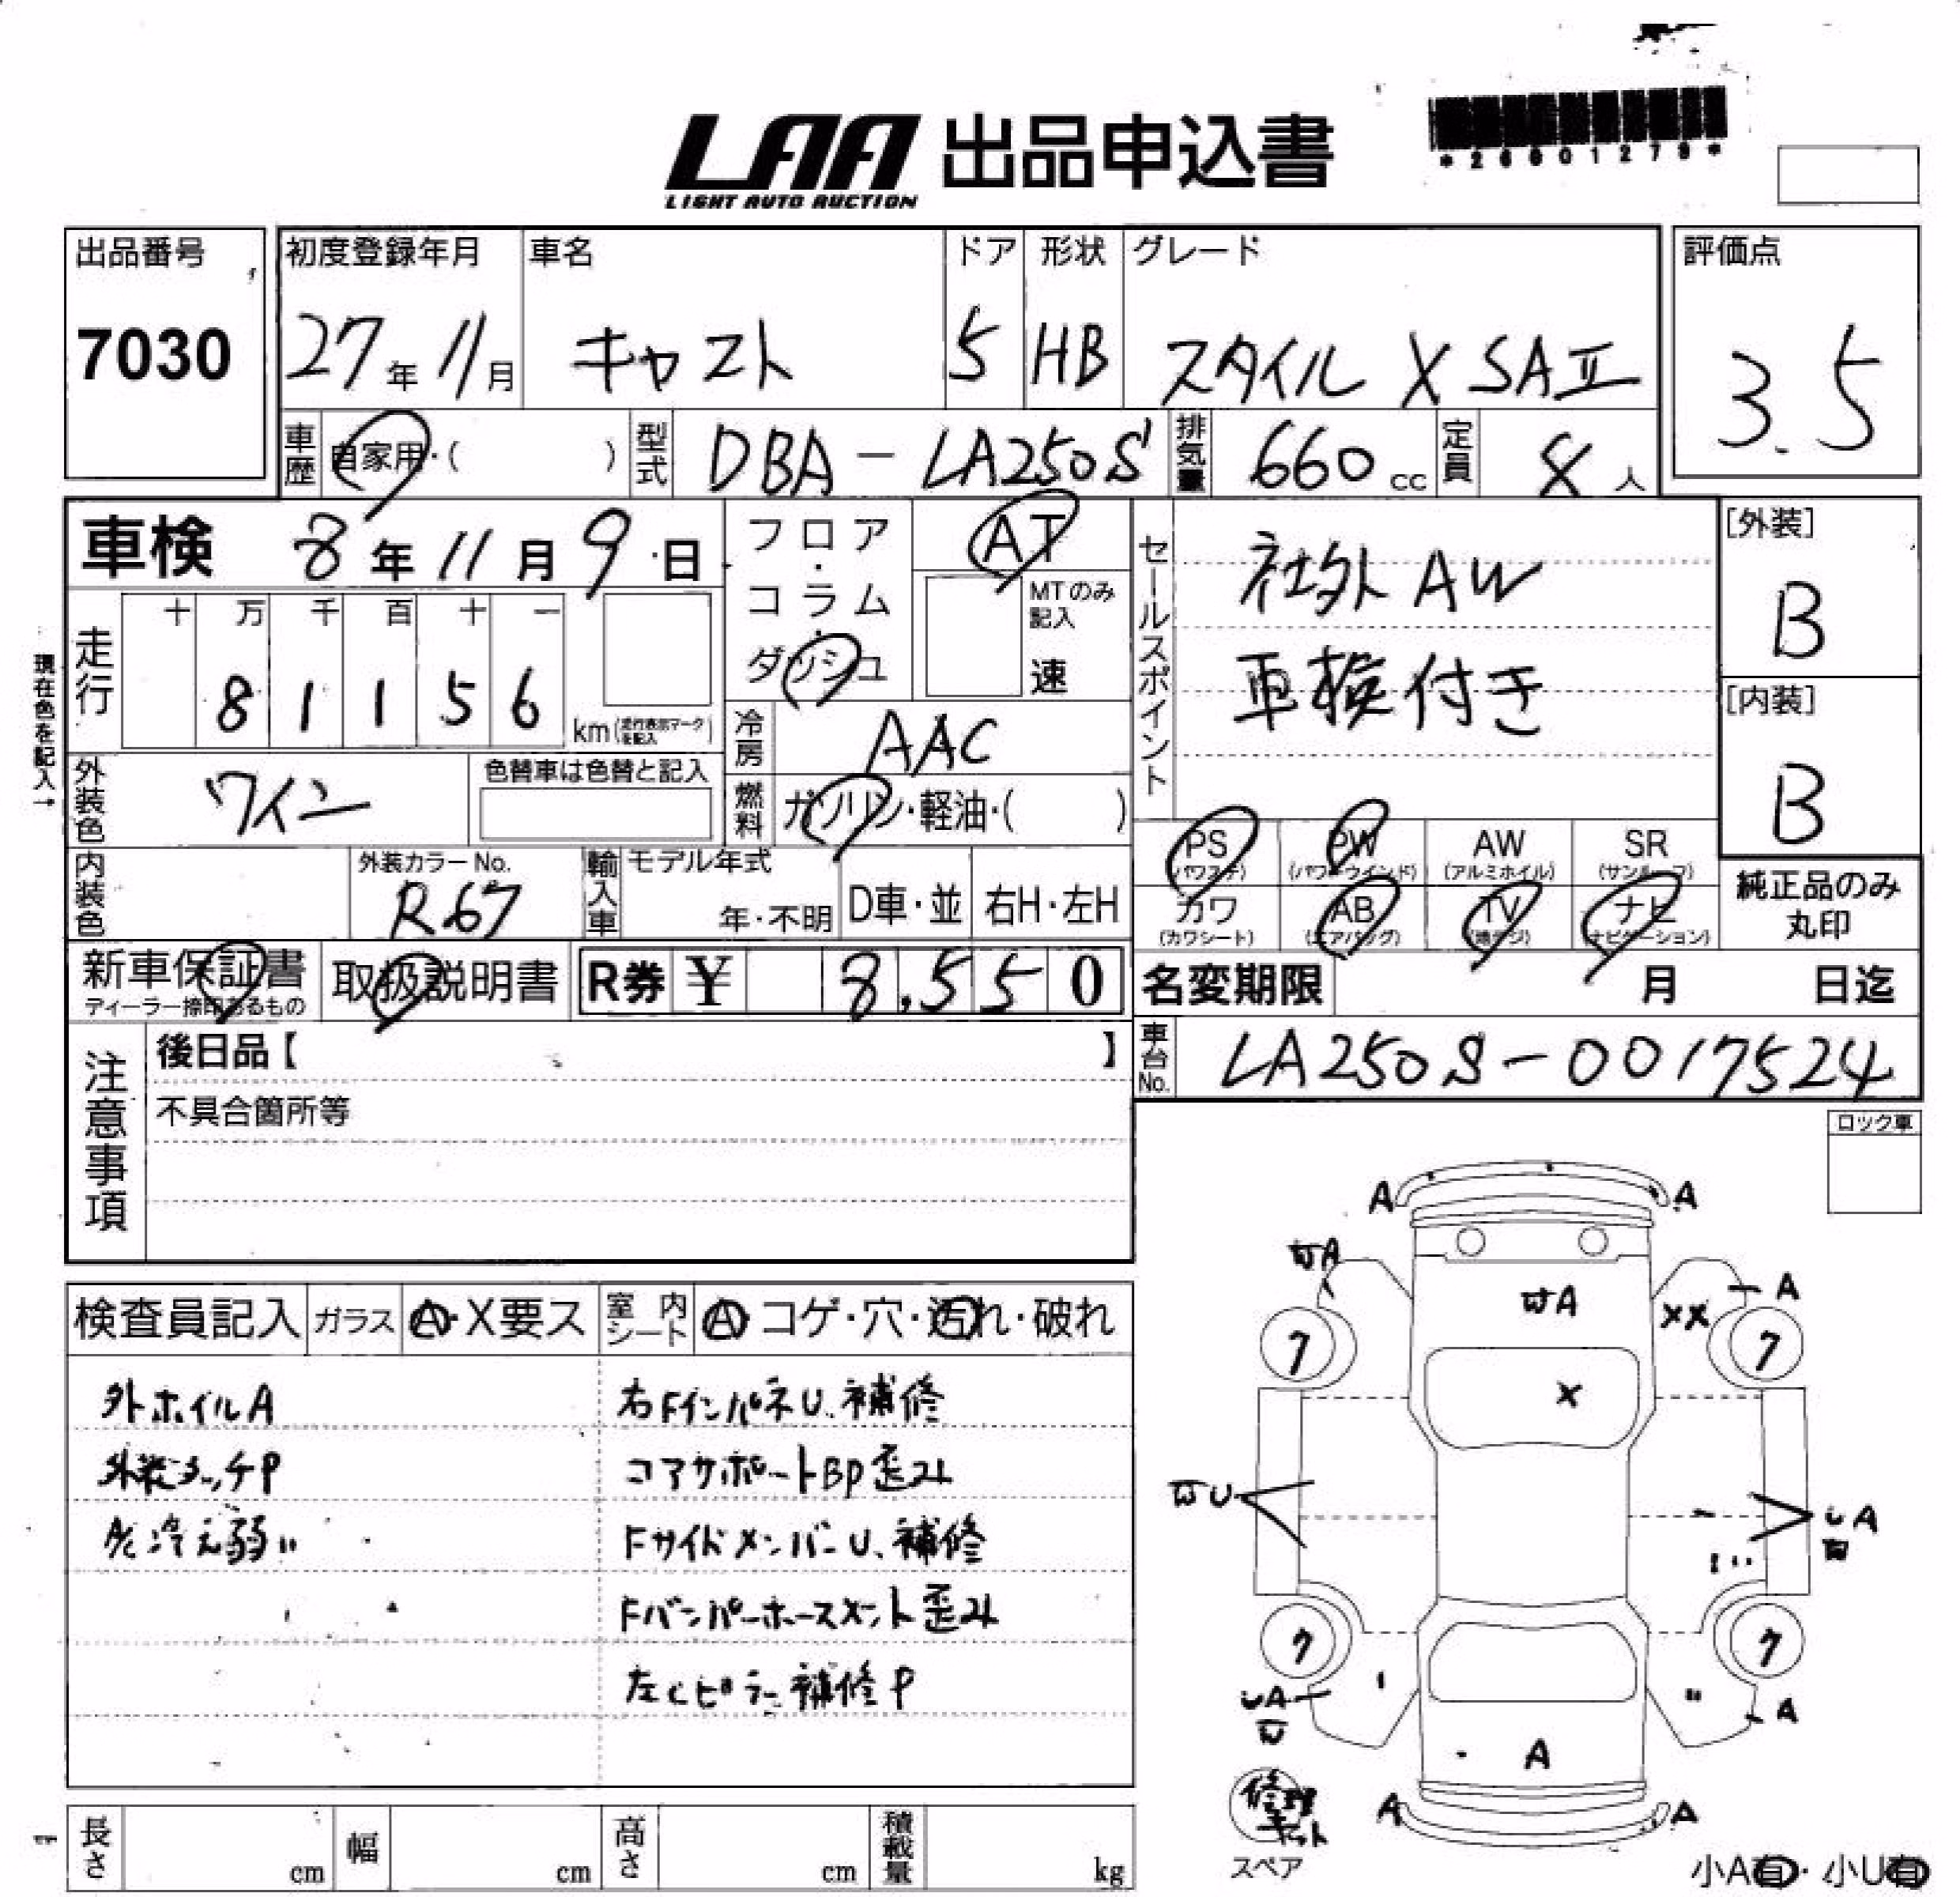 LAA 出品申込書
LIGHT AUTO AUCTION
出品番号
7030
初度登録年月 車名 ドア 形状 グレード
27年 11月 キャスト 5 HB スタイル X SAⅡ
評価点
3.5
車歴 自家用・( ) 型式 DBA-LA250S 排気量 660 cc 定員 人
車検 8年 11月 9日
フロア・コラム・ダッシュ
AT
MTのみ記入
速
走行
十 万 千 百 十 一
8 1 1 5 6
km(走行表示マークを記入)
現在色を記入→
冷房 AAC
外装色 ワイン
色替車は色替と記入
燃料 ガソリン・軽油・( )
セールスポイント
社外AW
車検付き
[外装]
B
[内装]
B
PS PW AW SR
(パワステ) (パワーウインド) (アルミホイル) (サンルーフ)
カワ AB TV ナビ
(カワシート) (エアバッグ) (地デジ) (ナビゲーション)
純正品のみ
丸印
内装色
外装カラーNo.
R67
輸入車 モデル年式
年・不明 D車・並 右H・左H
新車保証書
ディーラー捺印あるもの
取扱説明書
R券 ¥ 8,550
名変期限 月 日迄
車台No. LA250S-0017524
注意事項
後日品【 】
不具合箇所等
ロック車
検査員記入 ガラス A・X要ス 室内シート A・コゲ・穴・汚れ・破れ
外ホイルA
外装タッチP
A/C冷え弱い
右FインパネU、補修
コアサポートBP歪み
FサイドメンバーU、補修
Fバンパーホースメント歪み
左Cピラー補修P
A A
A
A
XX
A
7 7
X
U
A
7 7
A
A
A
A A
修理キット
スペア
小A有・小U有
長さ cm 幅 cm 高さ cm 積載量 kg